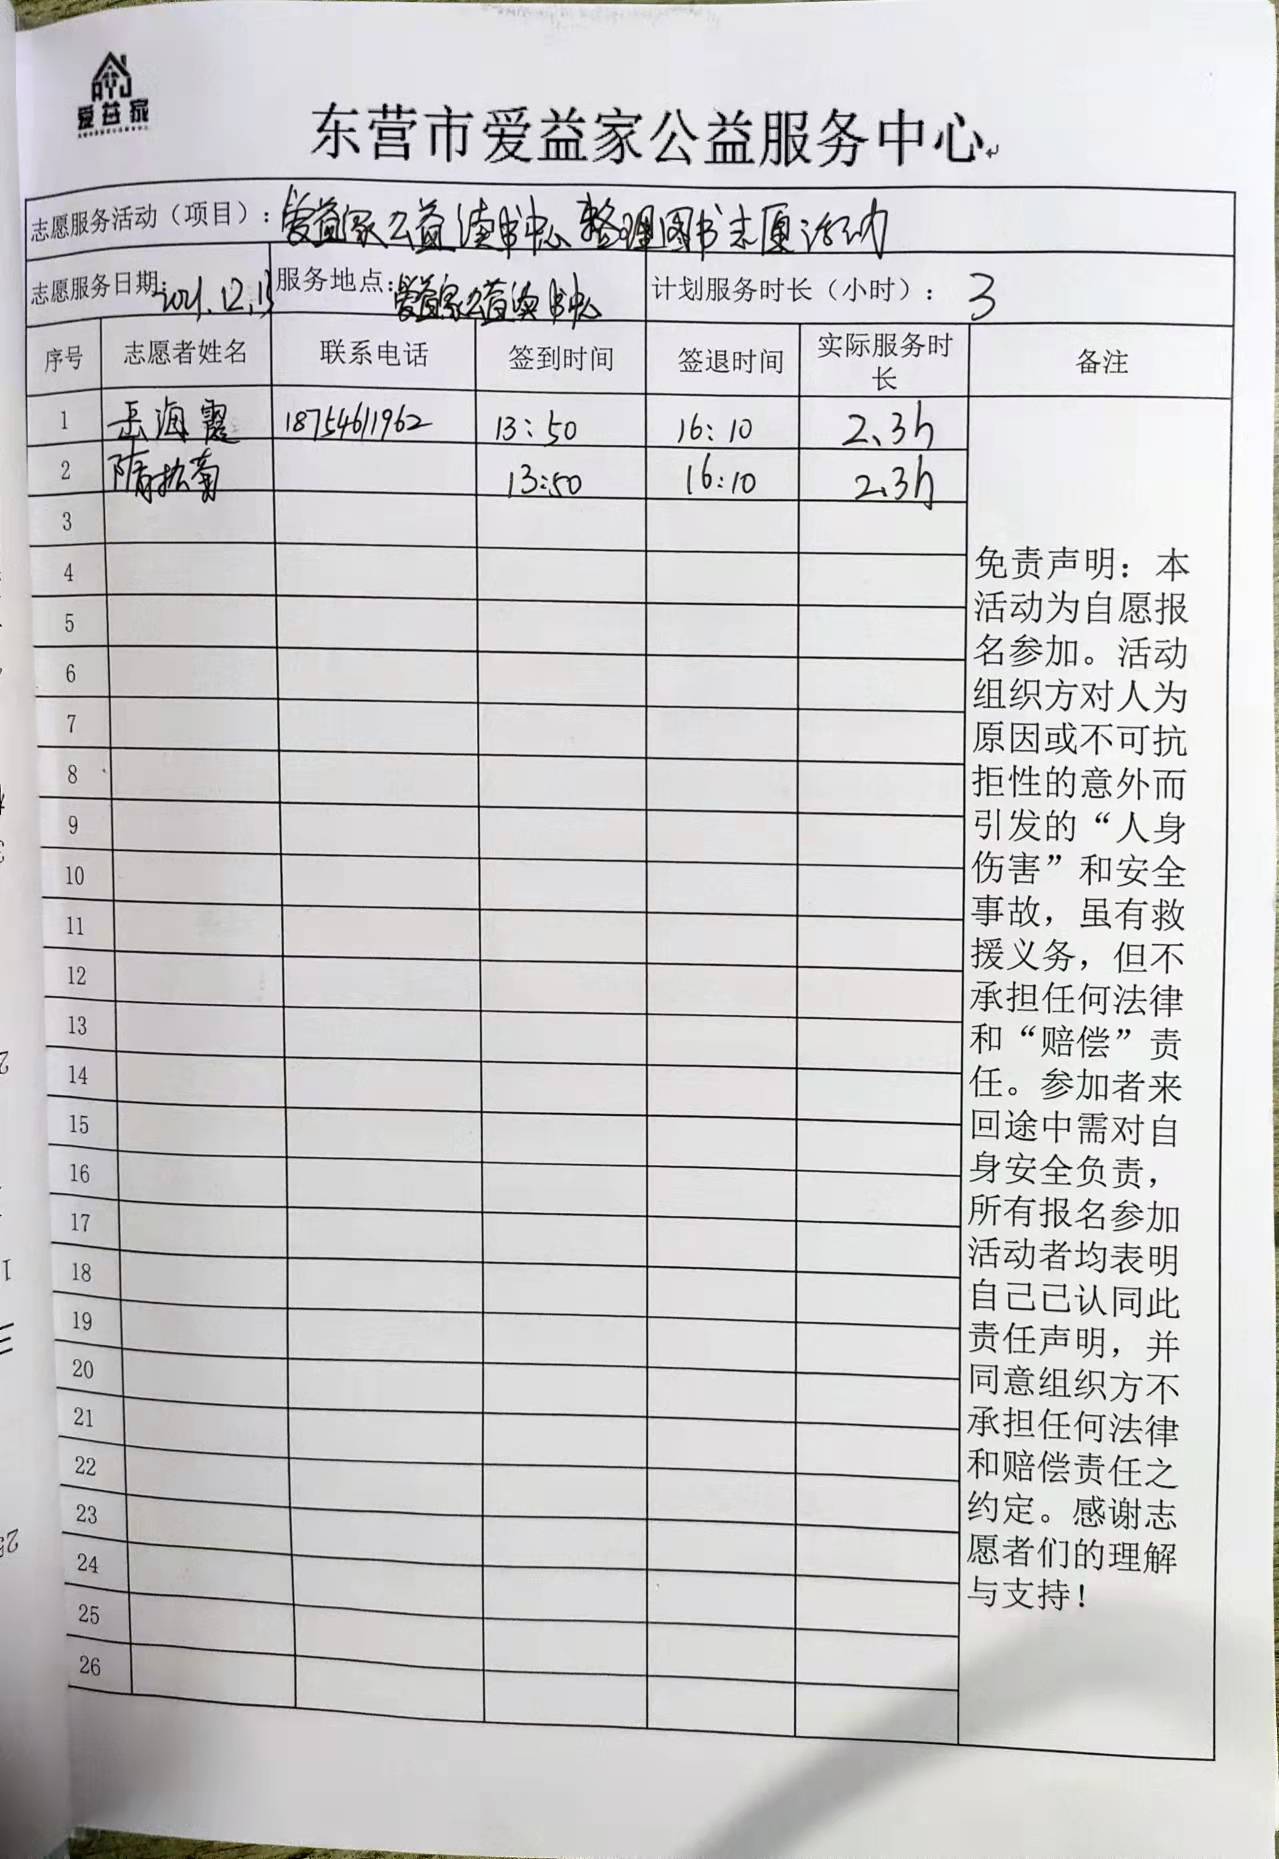 爱益家
东营市爱益家公益服务中心
志愿服务活动（项目）：爱益家公益读书中心整理图书志愿活动
志愿服务日期：2021.12.13 服务地点：爱益家公益读书中心 计划服务时长（小时）：3
序号 志愿者姓名 联系电话 签到时间 签退时间 实际服务时长 备注
1 岳海霞 18754611962 13:50 16:10 2.3h
2 隋松菊 13:50 16:10 2.3h
3
4
5
6
7
8
9
10
11
12
13
14
15
16
17
18
19
20
21
22
23
24
25
26
免责声明：本
活动为自愿报
名参加。活动
组织方对人为
原因或不可抗
拒性的意外而
引发的“人身
伤害”和安全
事故，虽有救
援义务，但不
承担任何法律
和“赔偿”责
任。参加者来
回途中需对自
身安全负责，
所有报名参加
活动者均表明
自己已认同此
责任声明，并
同意组织方不
承担任何法律
和赔偿责任之
约定。感谢志
愿者们的理解
与支持！